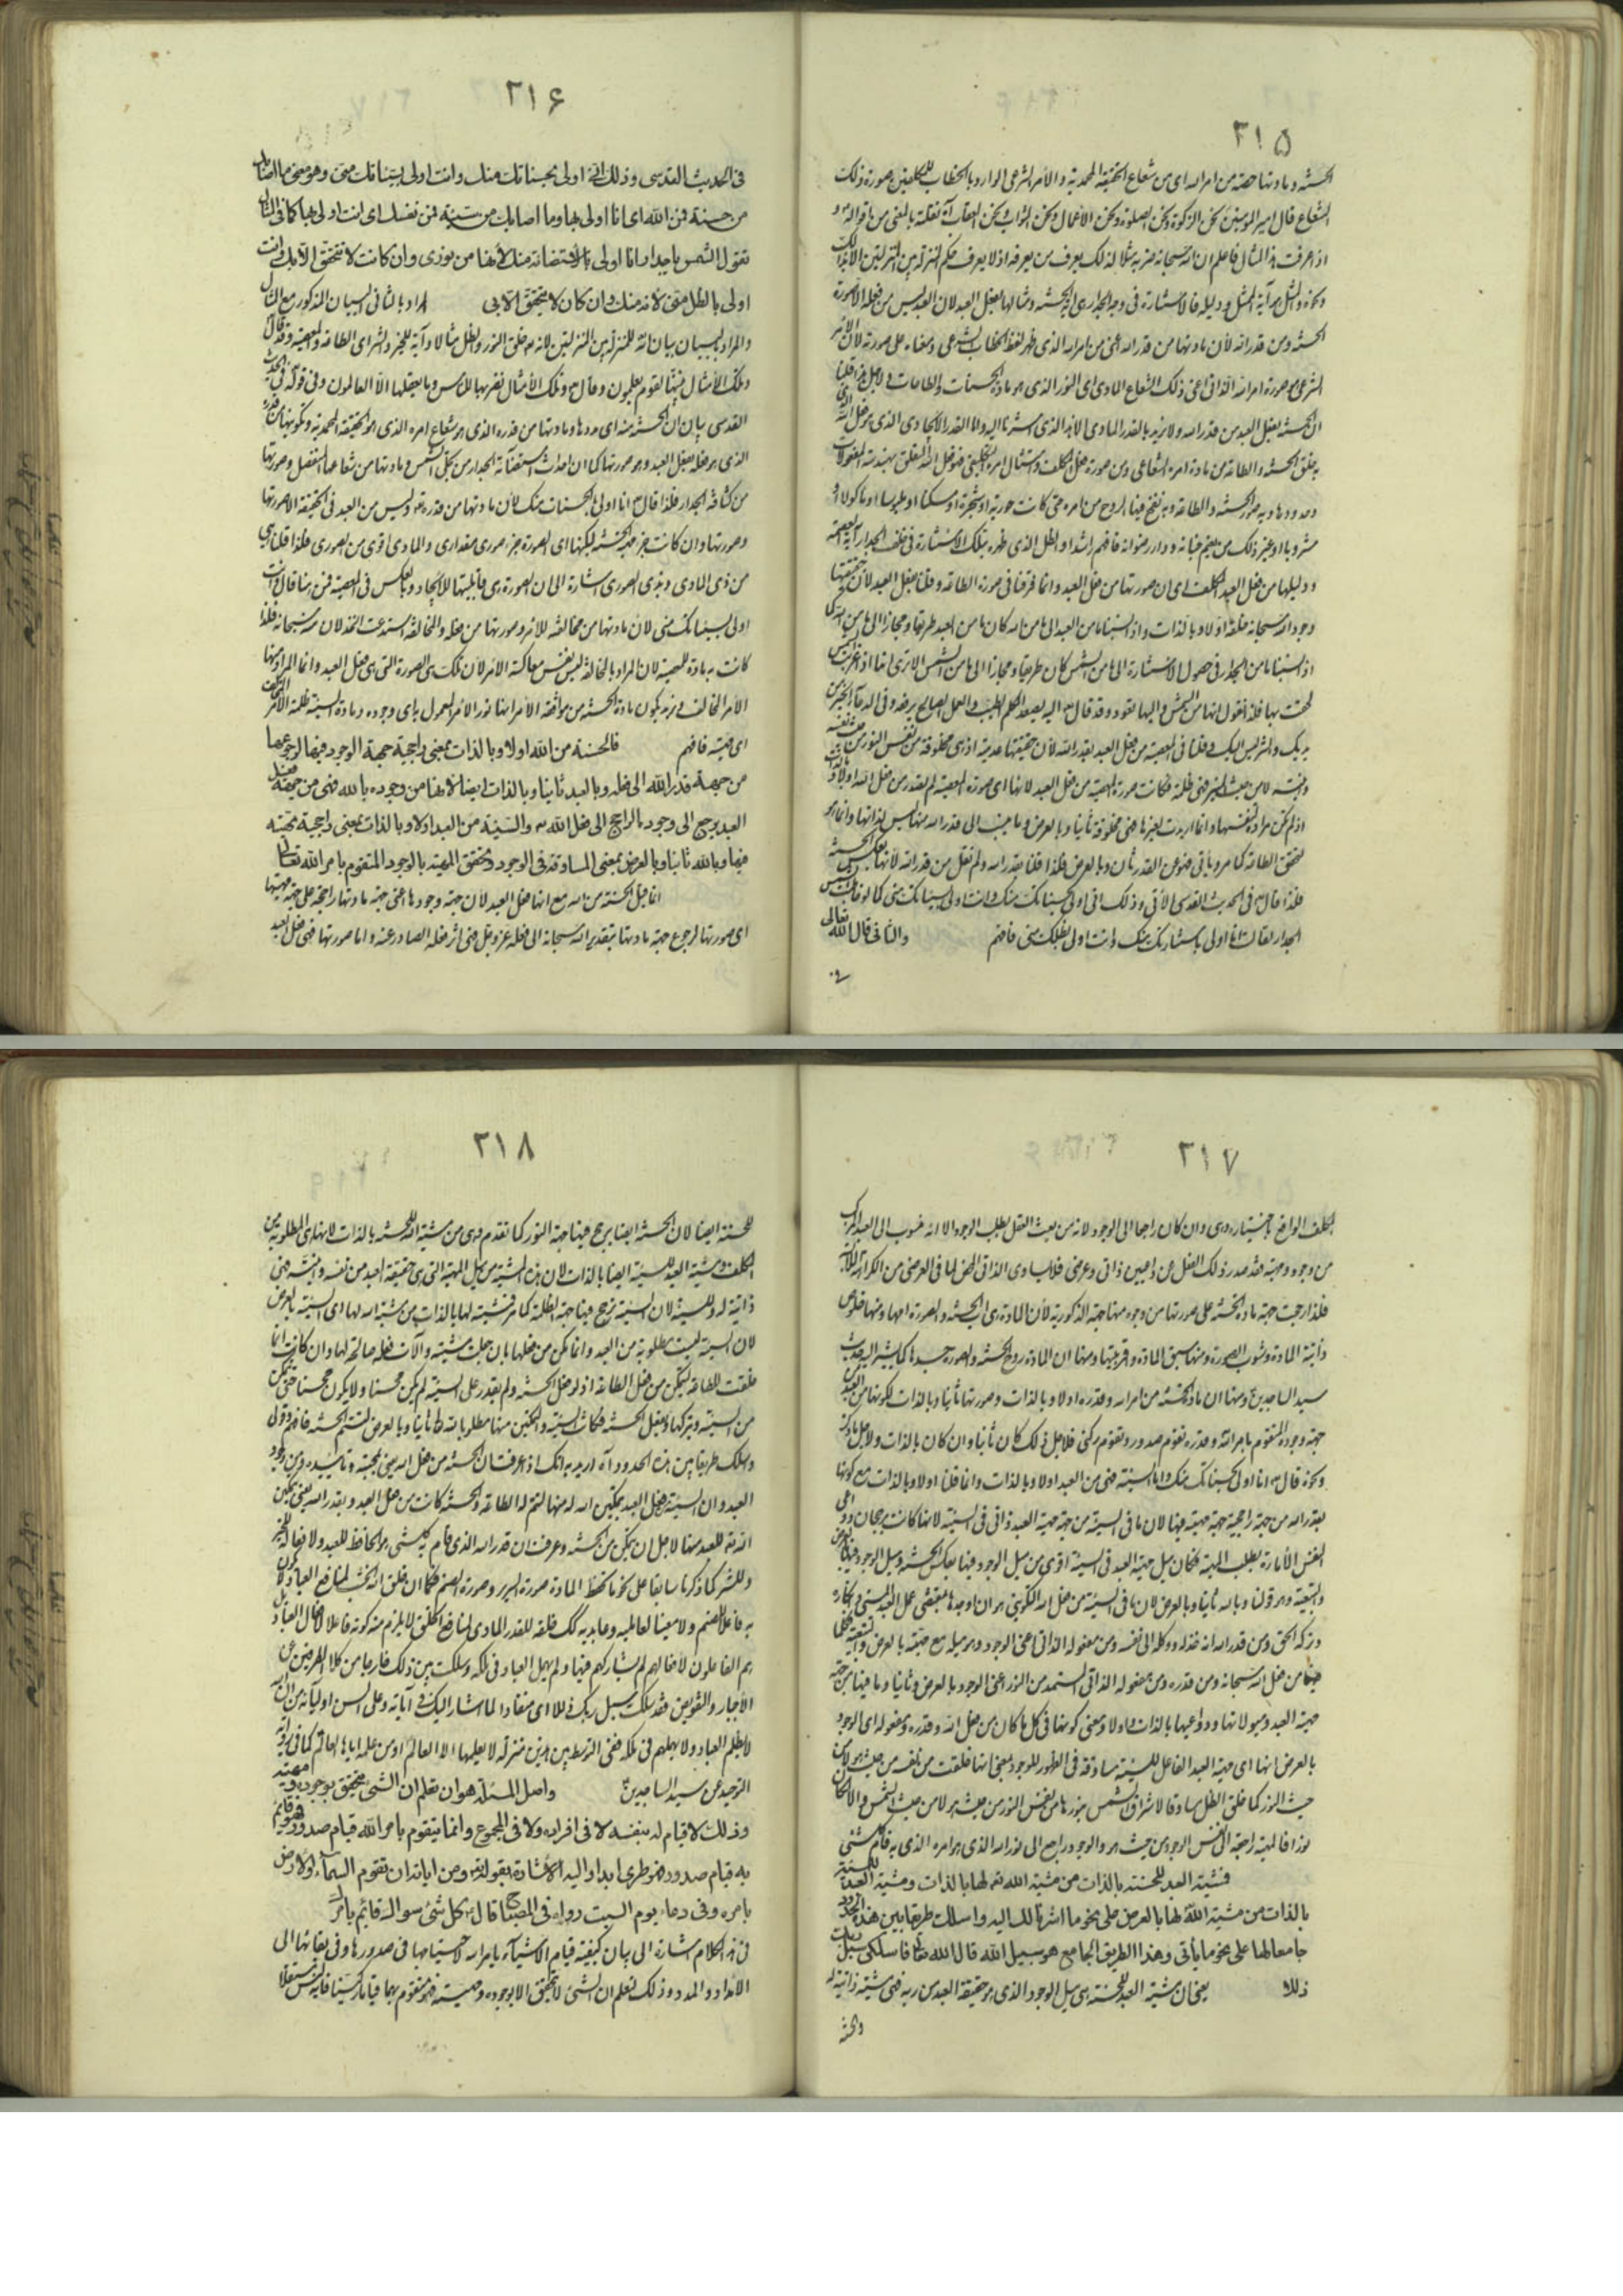 ٢١٥
الحسنة ومادتها حصة من امر الله اى من شعاع الحقيقة المحمدية والأمر الشرعى الوارد بالخطاب للمكلفين صورة ذلك
الشعاع قال امير المؤمنين نحن الزكوة ونحن الصلوة ونحن الأعمال ونحن الثواب ونحن العقاب
اذا عرفت هذا المثال فاعلم ان الله سبحانه ضربه مثلا لذلك يعرف من يعرفه اذ لا يعرف حكم المنزلة بين المنزلتين الا بذلك
فالاستنارة فى وجه الجدار هى آية الحسنة ومثالها بفعل العبد لان العبد ليس من فعله الا صورة
الحسنة ومن قدر الله لأن مادتها من قدر الله اعنى من امر الله الذى ظهر لفظ الخطاب الشرعى ومعناه على صورته لأن الأمر
الشرعى هو صورة امر الله الذاتى اعنى ذلك الشعاع المادى اى النور الذى هو مادة الحسنات والطاعات ولاجل هذا قلنا
ان الحسنة بفعل العبد من قدر الله ولا نريد بالقدر المادى الا هذا الذى اشرنا اليه واما القدر الايجادى الذى هو فعل الله
به خلق الحسنة والطاعة من مادة امره الشعاعى ومن صورة فعل المكلف وامتثال امره التكليفى فهو فعل الله المتعلق بهندسة المفعولات
وحدودها وبه صور الحسنة والطاعة وبه نفخ فيها الروح من امره حتى كانت حورية او شجرة او مسكنا او ملبوسا او مأكولا او
مشروبا او غير ذلك من نعيم جنانه ودار رضوانه فافهم راشدا والظل الذى ظهر بتلك الاستنارة فى خلف الجدار آية المعصية
ودليلها من فعل العبد المكلف اى ان صورتها من فعل العبد وانما فرقنا فى صورة الطاعة وقلنا بفعل العبد لأن حقيقتها
وجود الله سبحانه خلقه اولا وبالذات واذا نسبناها من العبد الى ما من الله كان ما من العبد طريقا ومجازا الى ما من الله كما
اذا نسبنا ما من الجدار فى حصول الاستنارة الى ما من الشمس كان طريقا ومجازا الى ما من الشمس الا ترى انها اذا غربت الشمس
لحقت بها فلذا نقول انها من الشمس واليها تعود وقد قال اليه يصعد الكلم الطيب والعمل الصالح يرفعه وفى الدعاء الخير من
يديك والشر ليس اليك وقلنا فى المعصية من فعل العبد بقدر الله لأن حقيقتها عدمية اذ هى مخلوقة من نفس النور من حيث نفسه
لا من حيث المنير فهى ظلمة فكانت صورة المعصية من فعل العبد لانها اى صورة المعصية لم تقدر من فعل الله اولا وبالذات
اذ لم تكن مرادة لنفسها وانما اريدت لغيرها فهى مخلوقة ثانيا وبالعرض وما ينسب الى قدر الله منها ليس لذاتها وانما هو
لتحقق الطاعة كما مر ويأتى فهو من القدر ثان وبالعرض فلذا قلنا بقدر الله ولم نقل من قدر الله لانها بعكس الحسنة
فلذا قال فى الحديث القدسى الآتى وذلك انى اولى بحسناتك منك وانت اولى بسيئاتك منى كما لو قالت الشمس
للجدار لقالت انا اولى باستنارتك منك وانت اولى بظلك منى فافهم والثانى قال الله تعالى
٢١۶
فى الحديث القدسى وذلك انى اولى بحسناتك منك وانت اولى بسيئاتك منى وهو معنى ما اصابك
من حسنة فمن الله اى انا اولى بها وما اصابك من سيئة فمن نفسك اى انت اولى بها كما فى المثال
تقول الشمس يا جدار انا اولى بالاستضائة منك لأنها من نورى وان كانت لا تتحقق الا بك وانت
اولى بالظل منى لأنه منك وان كان لا يتحقق الا بى اراد بالثانى البيان المذكور مع المثال
والمراد بالبيان بيان انه للمنزلة بين المنزلتين لانه خلق النور والظل مثالا وآية للخير والشر اى الطاعة والمعصية وقد قال
وتلك الأمثال نبينها لقوم يعلمون وقال وتلك الأمثال نضربها للناس وما يعقلها الا العالمون وفى قوله فى الحديث
القدسى بيان ان الحسنة منه اى مددها ومادتها من قدره الذى هو شعاع امره الذى هو الحقيقة المحمدية وتكوينها من قدره
الذى هو فعله بفعل العبد وهو صورتها كما ان احداث استضائة الجدار من تجلى الشمس ومادتها من شعاعها المنفصل وصورتها
من كثافة الجدار فلذا قال انا اولى بالحسنات منك لأن مادتها من قدره وليس من العبد فى الحقيقة الا صورتها
وصورتها وان كانت جزء مهية الحسنة لكنها اى الصورة جزء صورى مقدارى والمادى اقوى من الصورى فلذا قلنا هى
من ذى المادى وبذى الصورى اشارة الى ان الصورة هى قابليتها للايجاد وبالعكس فى المعصية فمن هنا قال وانت
اولى بسيئاتك منى لان مادتها من مخالفة للامر وصورتها من فعله والمخالفة استدعت الخذلان منه سبحانه فلذا
كانت به مادة للمعصية لان المراد بالمخالفة ليس نفس معاكسة الامر لأن تلك هى الصورة التى هى فعل العبد وانما المراد منها
الأمر المخالف كون مادة الحسنة من موافقة الأمر انها نور الأمر المعمول به اى وجوده ومادة السيئة ظلمة الأمر المتروك
اى مهيته فافهم فالحسنة من الله اولا وبالذات بمعنى راجحية جهة الوجود فيها لرجوعها
من جهة قدر الله الى فعله وبالعبد ثانيا وبالذات ايضا لأنها من وجوده بالله فهى من جهة فعل
العبد يرجع الى وجوده الراجع الى فعل الله والسيئة من العبد اولا وبالذات بمعنى راجحية مهيته
فيها وبالله ثانيا وبالعرض بمعنى المساوقة فى الوجود وتحقق المهية بالوجود المتقوم بامر الله تعالى
انما قيل الحسنة من الله مع انها فعل العبد لأن جهة وجودها اعنى جهة مادتها راجحة على جهة مهيتها
اى صورتها لرجوع جهة مادتها بتقدير الله سبحانه الى فعله عز وجل فهى اثر فعله الصادر عنه واما صورتها فهى فعل العبد
٢١٧
المكلف الواقع باختياره وهى وان كان راجعا الى الوجود لانه من بعث العقل بطلب الوجود الا انه منسوب الى العبد المركب
من وجود ومهية فقد صدر ذلك الفعل عن داعيين ذاتى وعرضى فلا يساوى الذاتى المحض لما فى العرضى من الكراهة للذاتى
فلذا رجحت جهة مادة الحسنة على صورتها من وجوه منها جهة المذكورية لأن المادة هى اب الحسنة والصورة امها ومنها خلوص
ذاتية المادة وشوب الصورة ومنها سبق المادة وقربيتها ومنها ان المادة روح الحسنة والصورة جسدها كما يشير اليه حديث
سيد الساجدين ومنها ان مادة الحسنة من امر الله وقدره اولا وبالذات وصورتها ثانيا وبالذات لكونها من العبد من
جهة وجوده المتقوم بامر الله وقدره تقوم صدور وتقوم ركنى فلاجل ذلك كان ثانيا وان كان بالذات ولاجل ما ذكر
ونحوه قال انا اولى بحسناتك منك واما السيئة فهى من العبد اولا وبالذات وانما قلنا اولا وبالذات مع كونها
بقدر الله من جهة راجحية جهة مهيته فيها لان ما فى السيئة من جهة مهية العبد ذاتى فى السيئة لانها كانت برجحان دواعى
النفس الأمارة بطلب المهية فكان ميل جهة العبد فى السيئة اقوى من ميل الوجود فيها بعكس الحسنة وميل الوجود فيها بالعرض
والتبعية وهو قولنا وبالله ثانيا وبالعرض لان ما فى السيئة من فعل الله التكوينى هو ان اوجدها بمقتضى عمل العبد السيئ وانكاره
وتركه الحق ومن قدر الله انه خذله ووكله الى نفسه ومن مفعوله الذاتى اعنى الوجود وهو ميله مع مهيته بالعرض والتبعية فكلما
فيها من فعل الله سبحانه ومن قدره ومن مفعوله الذاتى المستمد من النور اعنى الوجود بالعرض وثانيا وما فيها من جهة
مهية العبد وميولاتها ودواعيها بالذات واولا ومعنى كونها فى كل ما كان من فعل الله وقدره ومفعوله اى الوجود
بالعرض انها اى مهية العبد الفاعل للسيئة مساوقة فى الظهور للوجود بمعنى انها خلقت من نفسه من حيث هو لا من
حيث النور كما خلق الظل مساوقا لاشراق الشمس بنورها من نفس النور من حيث هو لا من حيث الشمس والا لكان
نورا فالمهية راجعة الى نفس الوجود من حيث هو والوجود راجع الى نور الله الذى هو امره الذى به قام كل شئ
فمشية العبد للحسنة بالذات من مشية الله لها بالذات ومشية العبد للسيئة
بالذات من مشية الله لها بالعرض على نحو ما اشرنا لك اليه واسلك طريقا بين هذه الحدود
جامعا لها على نحو ما يأتى وهذا الطريق الجامع هو سبيل الله قال الله تعالى فاسلكى سبل ربك
ذللا يعنى ان مشية العبد للحسنة هى ميل الوجود الذى هو حقيقة العبد من ربه فهى مشية ذاتية له
والحسنة
٢١٨
للحسنة ايضا لان الحسنة ايضا يرجح فيها جهة النور كما تقدم وهى من مشية الله للحسنة بالذات لانها هى المطلوبة من
المكلف ومشية العبد للسيئة ايضا بالذات لان هذه المشية من ميل المهية التى هى حقيقة العبد من نفسه فهى
ذاتية له وللسيئة لان السيئة ترجح فيها جهة الظلمة كما مر فمشيته لها بالذات من مشية الله لها اى السيئة بالعرض
لان السيئة ليست مطلوبة من العبد وانما تمكن من فعلها بان جعلت مشيته وآلات فعله صالحة لها وان كانت انما
خلقت للطاعة ليتمكن من فعل الطاعة اذ لو فعل الحسنة ولم يقدر على السيئة لم يكن محسنا ولا يكون محسنا حتى يتمكن
من السيئة ويتركها ويفعل الحسنة فكانت السيئة والتمكين منها مطلوبا لله ثانيا وبالعرض لتتم الحسنة فافهم وقولى
واسلك طريقا بين هذه الحدود آه اريد به انك اذا عرفت ان الحسنة من فعل الله يعنى بمحبته وتأييده ومن وجود
العبد وان السيئة بفعل العبد بتمكين الله له منها لتتم له الطاعة والحسنة كانت من فعل العبد وبقدر الله يعنى تمكين
الله للعبد منها لاجل ان يتمكن من الحسنة وعرفت ان قدر الله الذى قام به كل شئ هو الحافظ للعبد ولافعاله للخير
وللشر كما ذكرنا سابقا على نحو ما تحفظ المادة صورة السرير وصورة الصنم فكما ان خلق الله الخشب لمنافع العباد لا يكون
به فاعلا للصنم ولا معينا لعامليه وعابديه كذلك خلقه للقدر المادى لمنافع الخلق لا يلزم منه كونه فاعلا لافعال العباد بل
هم الفاعلون لافعالهم لم يشاركهم فيها ولم يهمل العباد فى ملكه وسلكت بين ذلك خارجا من كلا الطرفين عن
الأجبار والتفويض فقد سلكت سبل ربك ذللا اى منقادا لما اشار اليك فى آياته وعلى السن اوليائه من ان الله
لا يظلم العباد ولا يهملهم فى ملكه ففى التوسط بين هذين منزلة لا يعلمها الا العالم او من علمه اياها العالم كما فى رواية
التوحيد عن سيد الساجدين واصل المسئلة هو ان تعلم ان الشئ يتحقق بوجوده ومهيته
وذلك لا قيام له بنفسه لا فى افراده ولا فى المجموع وانما يتقوم بامر الله قيام صدور فهو قائم
به قيام صدور فهو طرى ابدا واليه الاشارة بقوله ومن اياته ان تقوم السماء والأرض
بامره وفى دعاء يوم السبت رواه فى المصباح قال كل شئ سواك قائم بامرك
فى هذا الكلام اشارة الى بيان كيفية قيام الاشياء بامر الله لاحتياجها فى صدورها وفى بقائها الى
الأمداد والمدد وذلك لتعلم ان الشئ لا يتحقق الا بوجوده ومهيته فهو متقوم بهما قياما ركنيا فانه ليس مستقلا